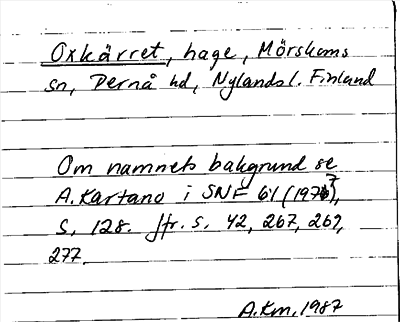 Oxkärret, hage, Mörskoms
sn, Pernå hd, Nylands l. Finland
Om namnets bakgrund se
A. Kartano i SNF 61 (1977),
S. 128. Jfr. s. 42, 267, 269,
277.
A.Km. 1987